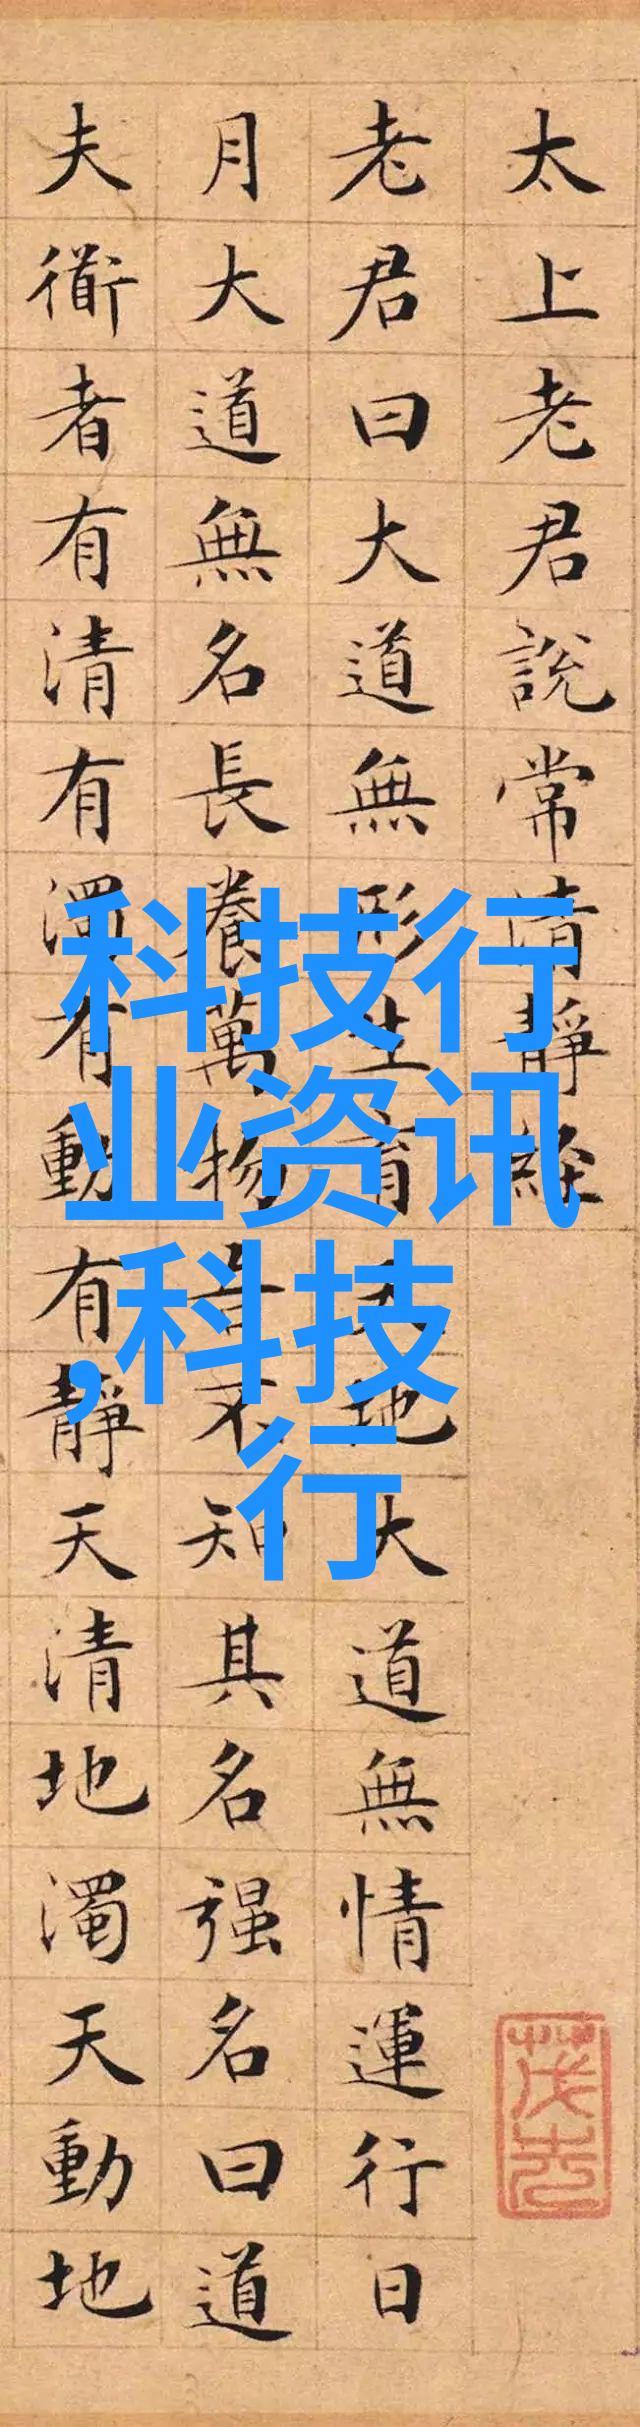 太上老君說常清靜經
老君曰大道無形生育天地大道無情運行日
月大道無名長養萬物吾不知其名强名曰道
夫衜者有清有濁有動有靜天清地濁天動地
科技行
业资讯
,科技
行